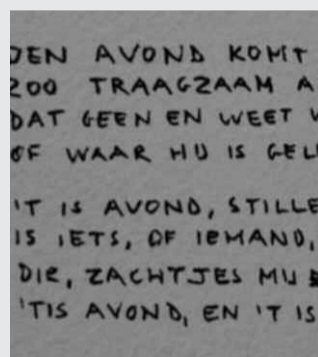 DEN AVOND KOMT
ZOO TRAAGZAAM A
DAT GEEN EN WEET W
OF WAAR HIJ IS GEL
'T IS AVOND, STILLE
IS IETS, OF IEMAND,
DIE, ZACHTJES MIJ
'TIS AVOND, EN 'T IS